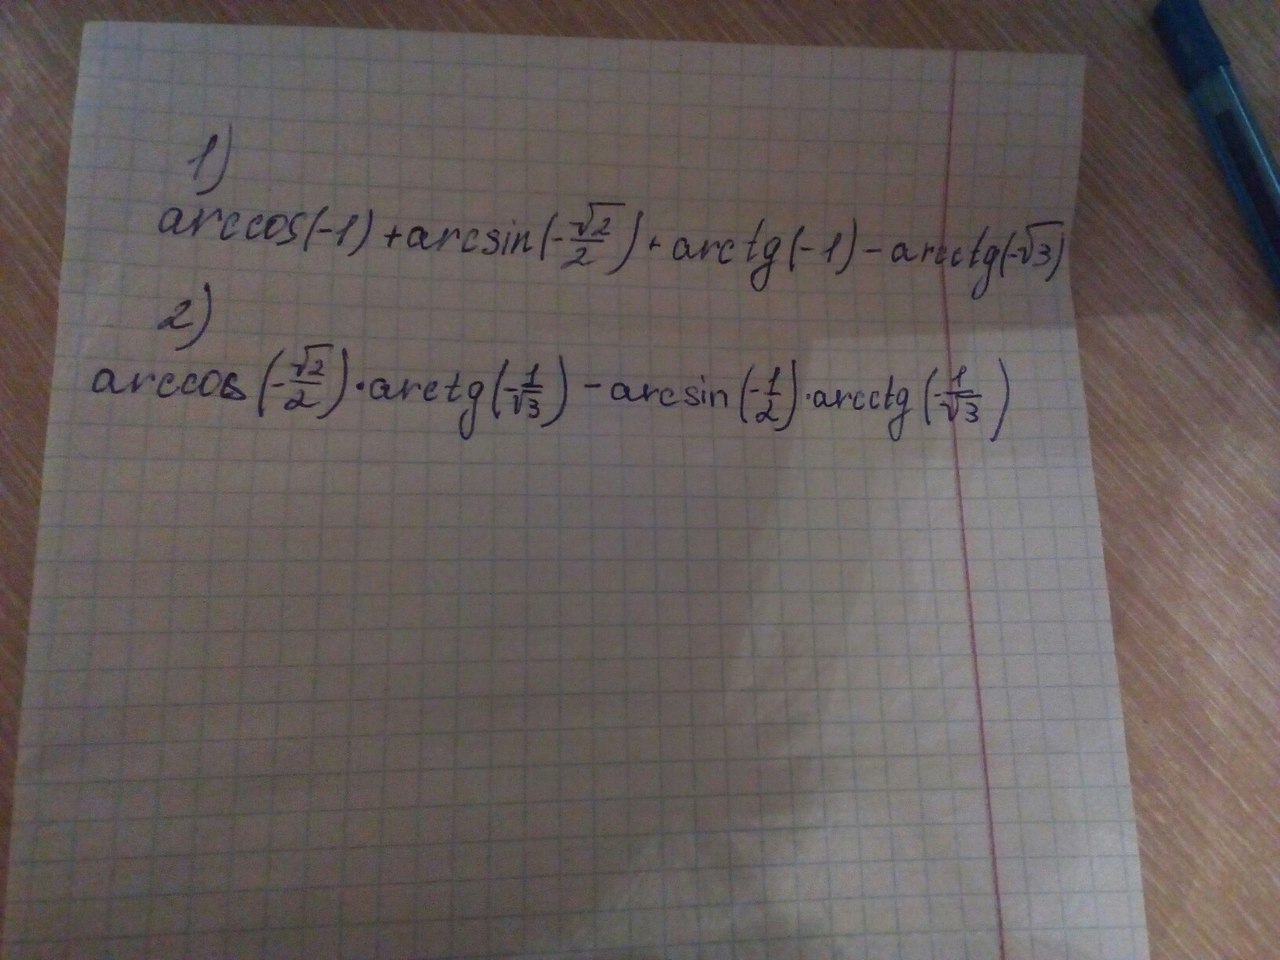 1)
arccos(-1) + arcsin(-√2/2) + arctg(-1) - arcctg(-√3)
2)
arccos(-√2/2) · arctg(-1/√3) - arcsin(-1/2) · arcctg(-1/√3)